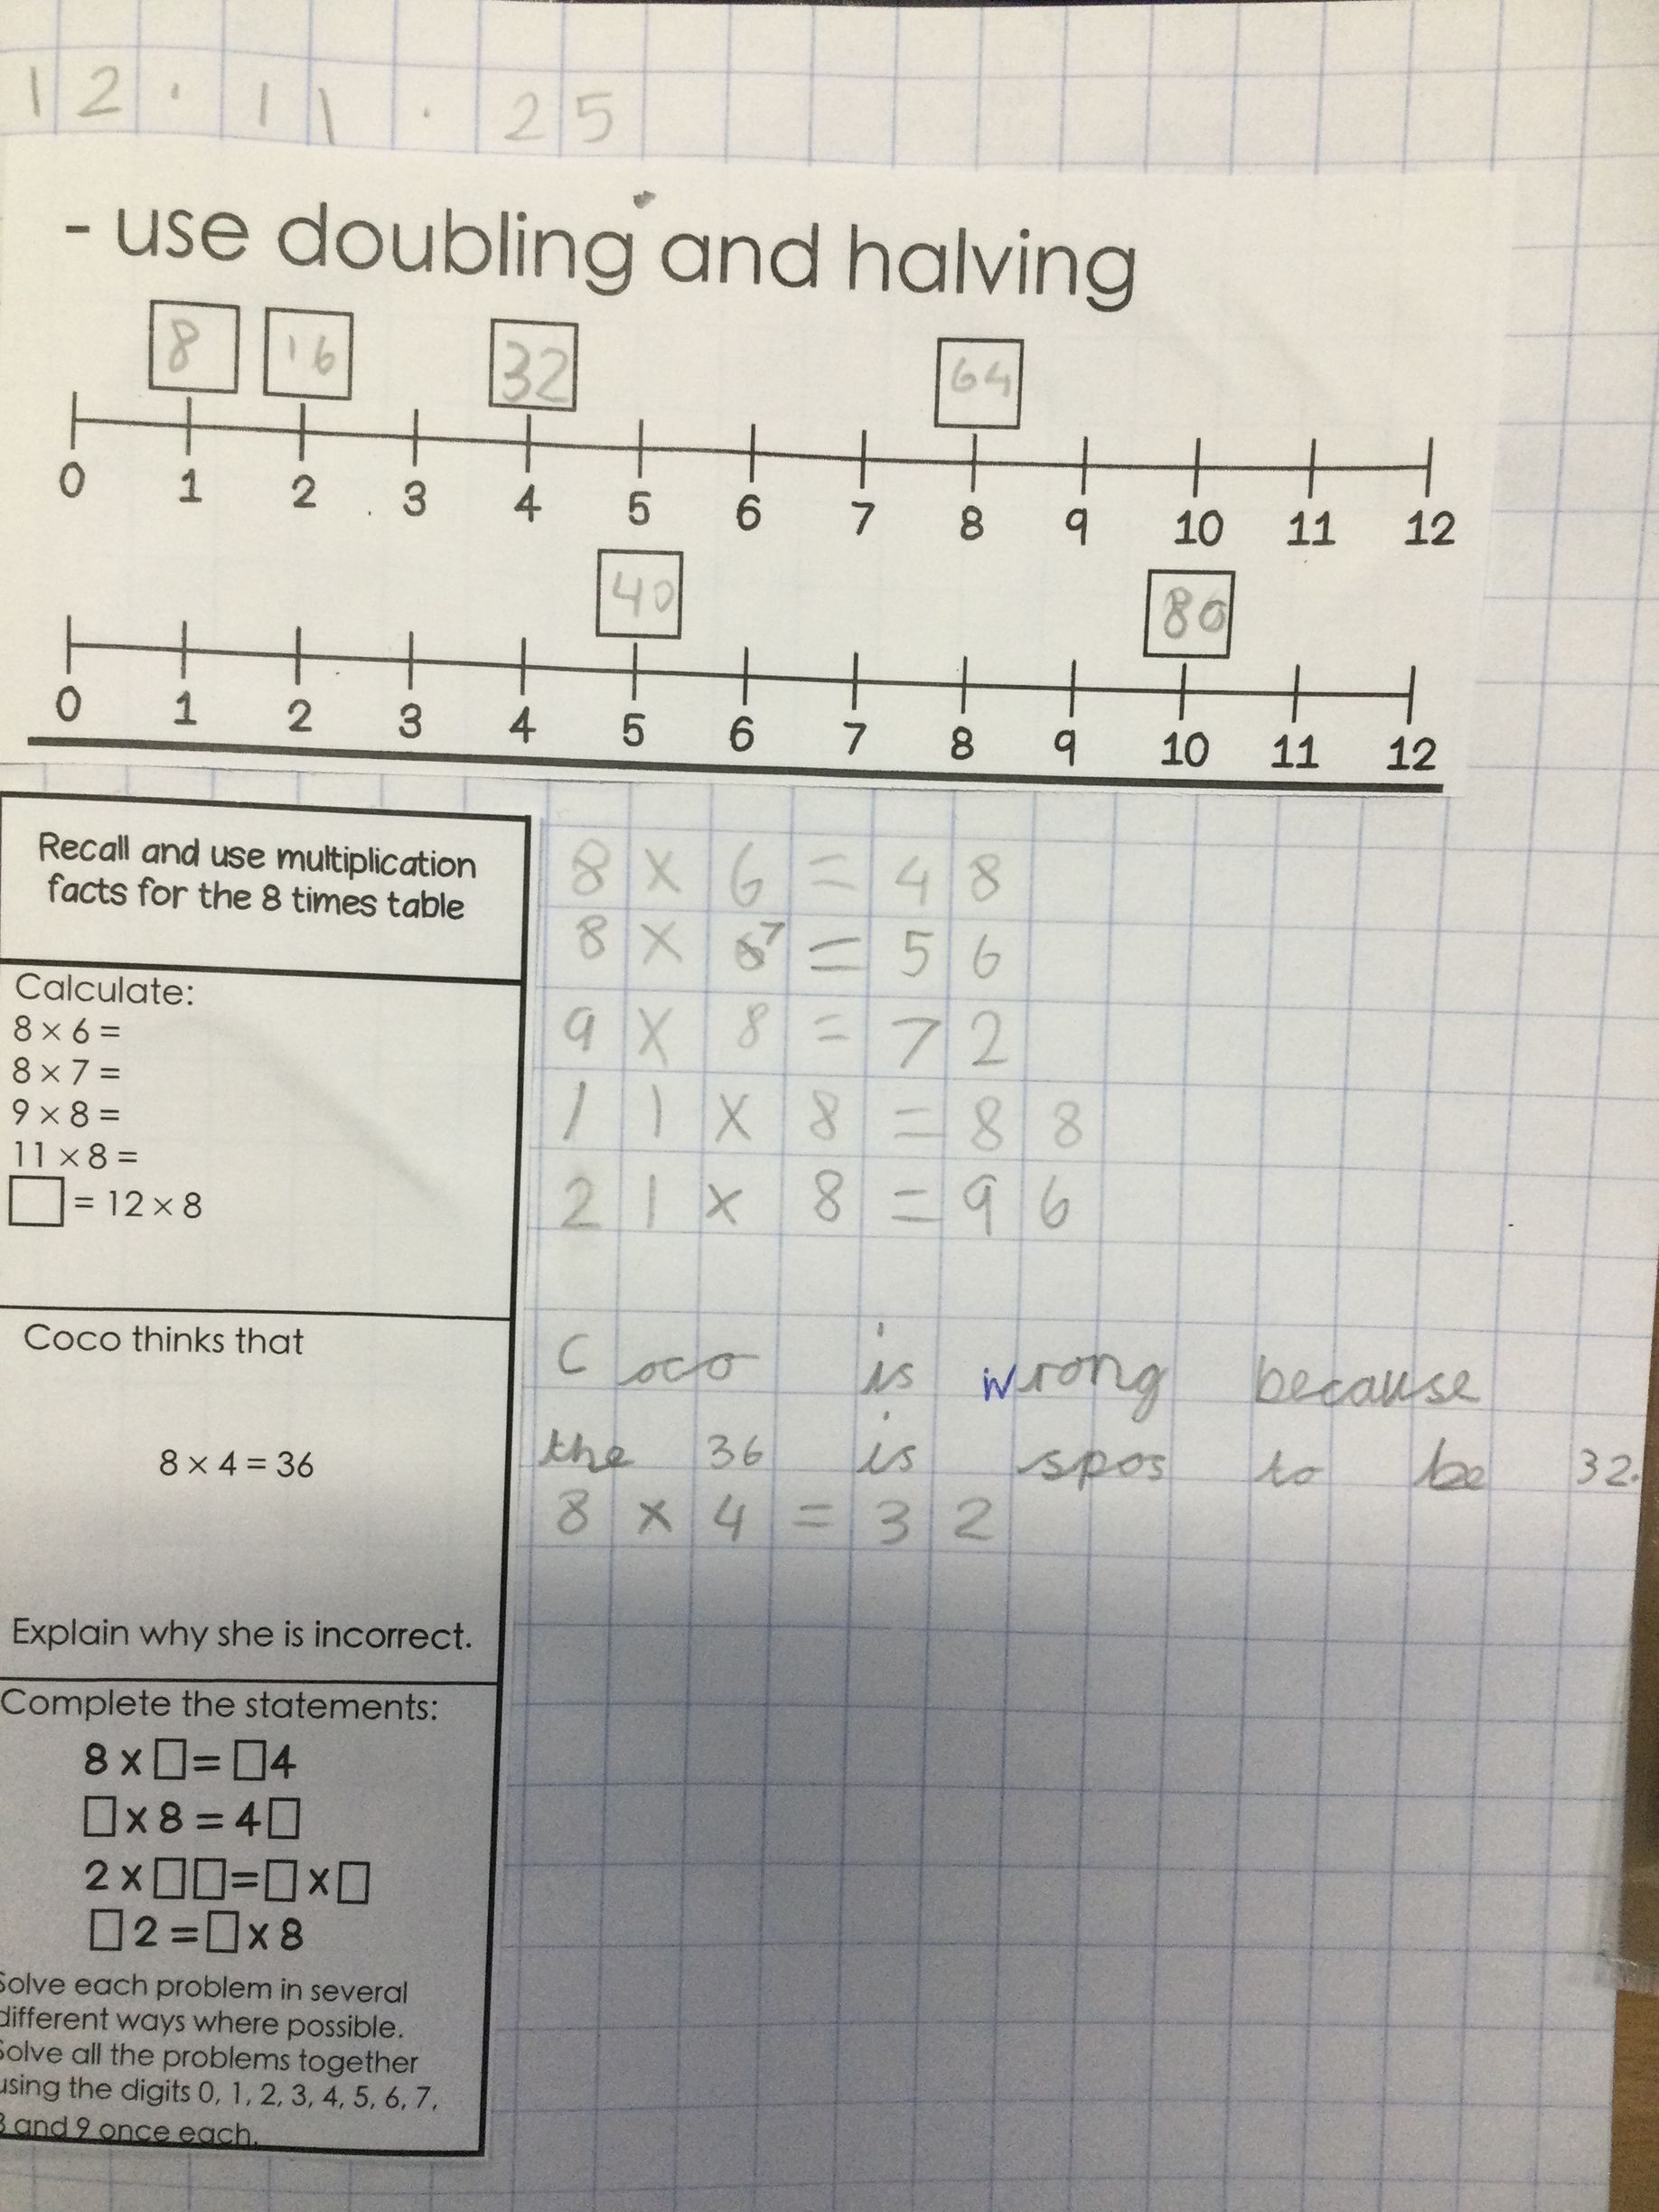 12.11.25
- use doubling and halving
8 16 32 64
0 1 2 3 4 5 6 7 8 9 10 11 12
40 80
0 1 2 3 4 5 6 7 8 9 10 11 12
Recall and use multiplication
facts for the 8 times table
Calculate:
8 × 6 =
8 × 7 =
9 × 8 =
11 × 8 =
□ = 12 × 8
8 × 6 = 48
8 × 7 = 56
9 × 8 = 72
11 × 8 = 88
21 × 8 = 96
Coco thinks that
8 × 4 = 36
Explain why she is incorrect.
Coco is wrong because
the 36 is spos to be 32.
8 × 4 = 32
Complete the statements:
8 × □ = □4
□ × 8 = 4□
2 × □□ = □ × □
□2 = □ × 8
Solve each problem in several
different ways where possible.
Solve all the problems together
using the digits 0, 1, 2, 3, 4, 5, 6, 7,
8 and 9 once each.